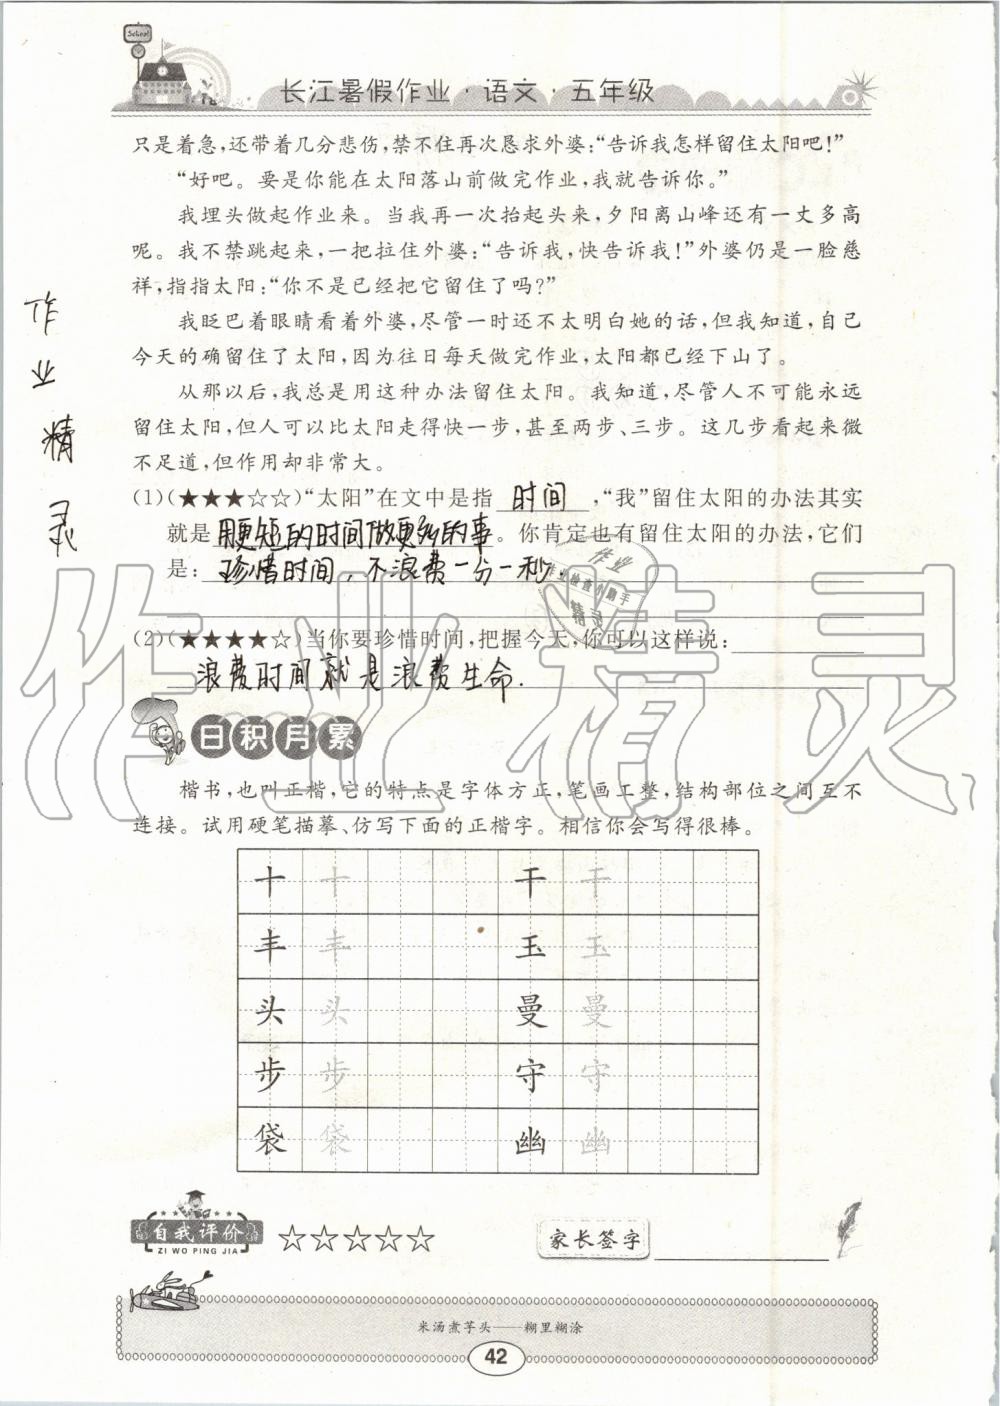 School
长江暑假作业·语文·五年级
只是着急,还带着几分悲伤,禁不住再次恳求外婆:“告诉我怎样留住太阳吧!”
“好吧。要是你能在太阳落山前做完作业,我就告诉你。”
我埋头做起作业来。当我再一次抬起头来,夕阳离山峰还有一丈多高
呢。我不禁跳起来,一把拉住外婆:“告诉我,快告诉我!”外婆仍是一脸慈
祥,指指太阳:“你不是已经把它留住了吗?”
我眨巴着眼睛看着外婆,尽管一时还不太明白她的话,但我知道,自己
今天的确留住了太阳,因为往日每天做完作业,太阳都已经下山了。
从那以后,我总是用这种办法留住太阳。我知道,尽管人不可能永远
留住太阳,但人可以比太阳走得快一步,甚至两步、三步。这几步看起来微
不足道,但作用却非常大。
作业精灵
(1)(★★★☆☆)“太阳”在文中是指 时间 ,“我”留住太阳的办法其实
就是 用更短的时间做更多的事 。你肯定也有留住太阳的办法,它们
是: 珍惜时间,不浪费一分一秒.
作业
作业检查小助手
精灵
(2)(★★★★☆)当你要珍惜时间,把握今天,你可以这样说:
浪费时间就是浪费生命.
作业精灵
日积月累
楷书,也叫正楷,它的特点是字体方正,笔画工整,结构部位之间互不
连接。试用硬笔描摹、仿写下面的正楷字。相信你会写得很棒。
十 十 干 干
丰 丰 玉 玉
头 头 曼 曼
步 步 守 守
袋 袋 幽 幽
自我评价
ZI WO PING JIA
☆☆☆☆☆
家长签字
米汤煮芋头——糊里糊涂
42